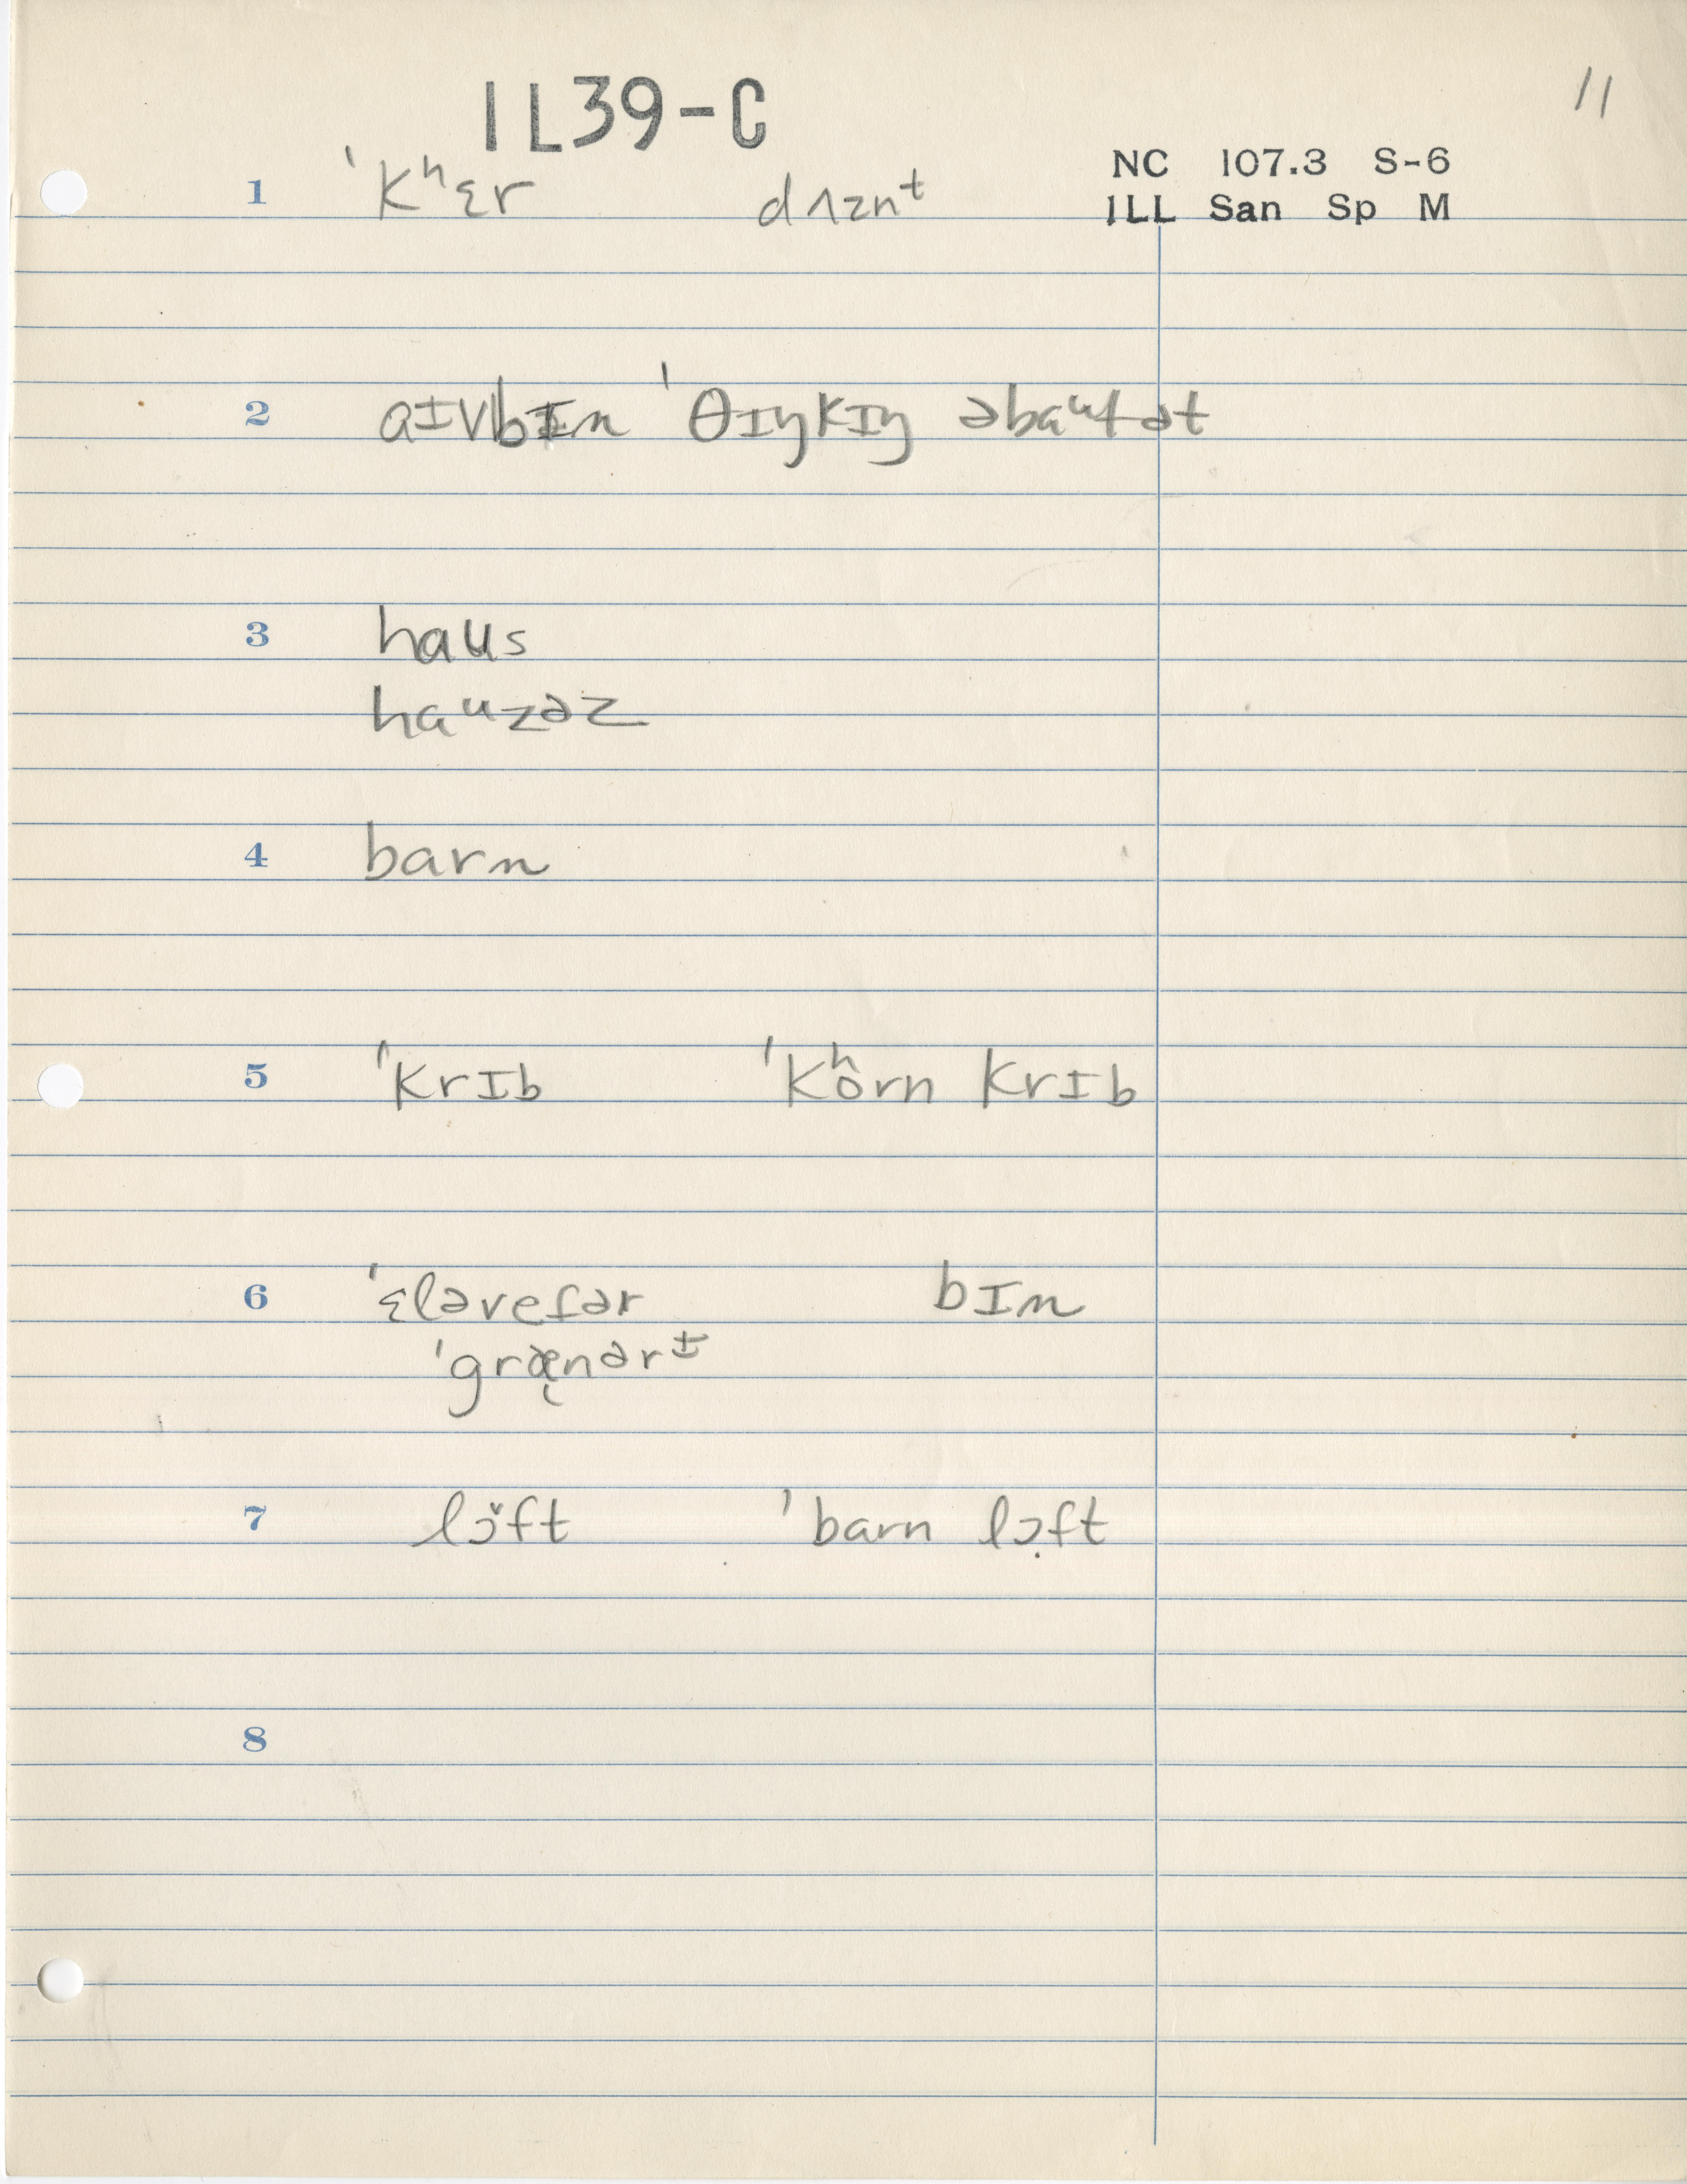 IL39-C
11
NC 107.3 S-6
ILL San Sp M
1 ˈkʰɛr dʌznᵗ
2 aɪvbɪn ˈθɪŋkɪŋ əbaᵘtət
3 haus
haᵘzəz
4 barn
5 ˈkrɪb ˈkʰôrn krɪb
6 ˈɛləvefər bɪn
ˈgræ̨nərᶤ
7 lɔ̌ft ˈbarn lɔ̣ft
8